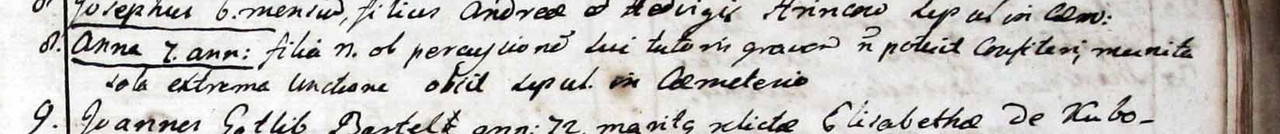 Josephus 6. mensiū, filius Andreæ & Hedvigis sepul in Cæm:
8. Anna 7. ann: filia n. ob percussionē sui tutoris gravem n̄ potuit Confiteri, munita
sola extrema Unctione obiit sepul. in Cæmeterio
9. Joannes Gotlib Bartelt ann: 72. maritg relictæ Elisabethæ de Kubo-